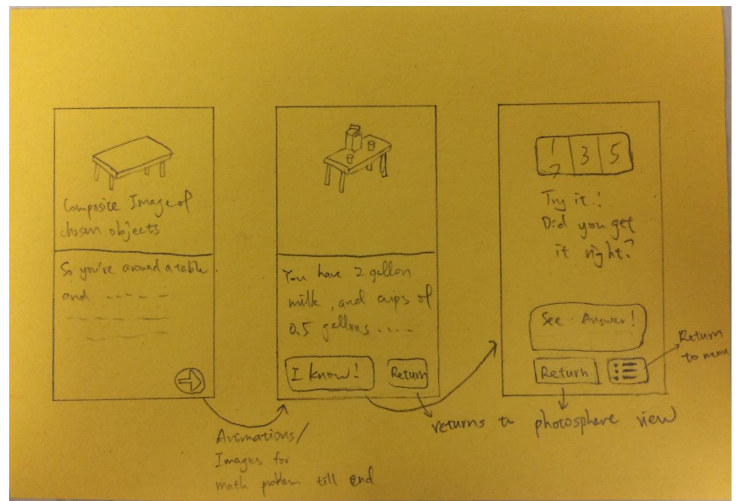 Composite Image of
chosen objects
So you're around a table
and
You have 2 gallon
milk, and cups of
0.5 gallons ....
I know!
Return
1 3 5
2
Try it!
Did you get
it right?
See Answer!
Return
Return
to menu
Animations/
Images for
math problem till end
returns to photosphere view